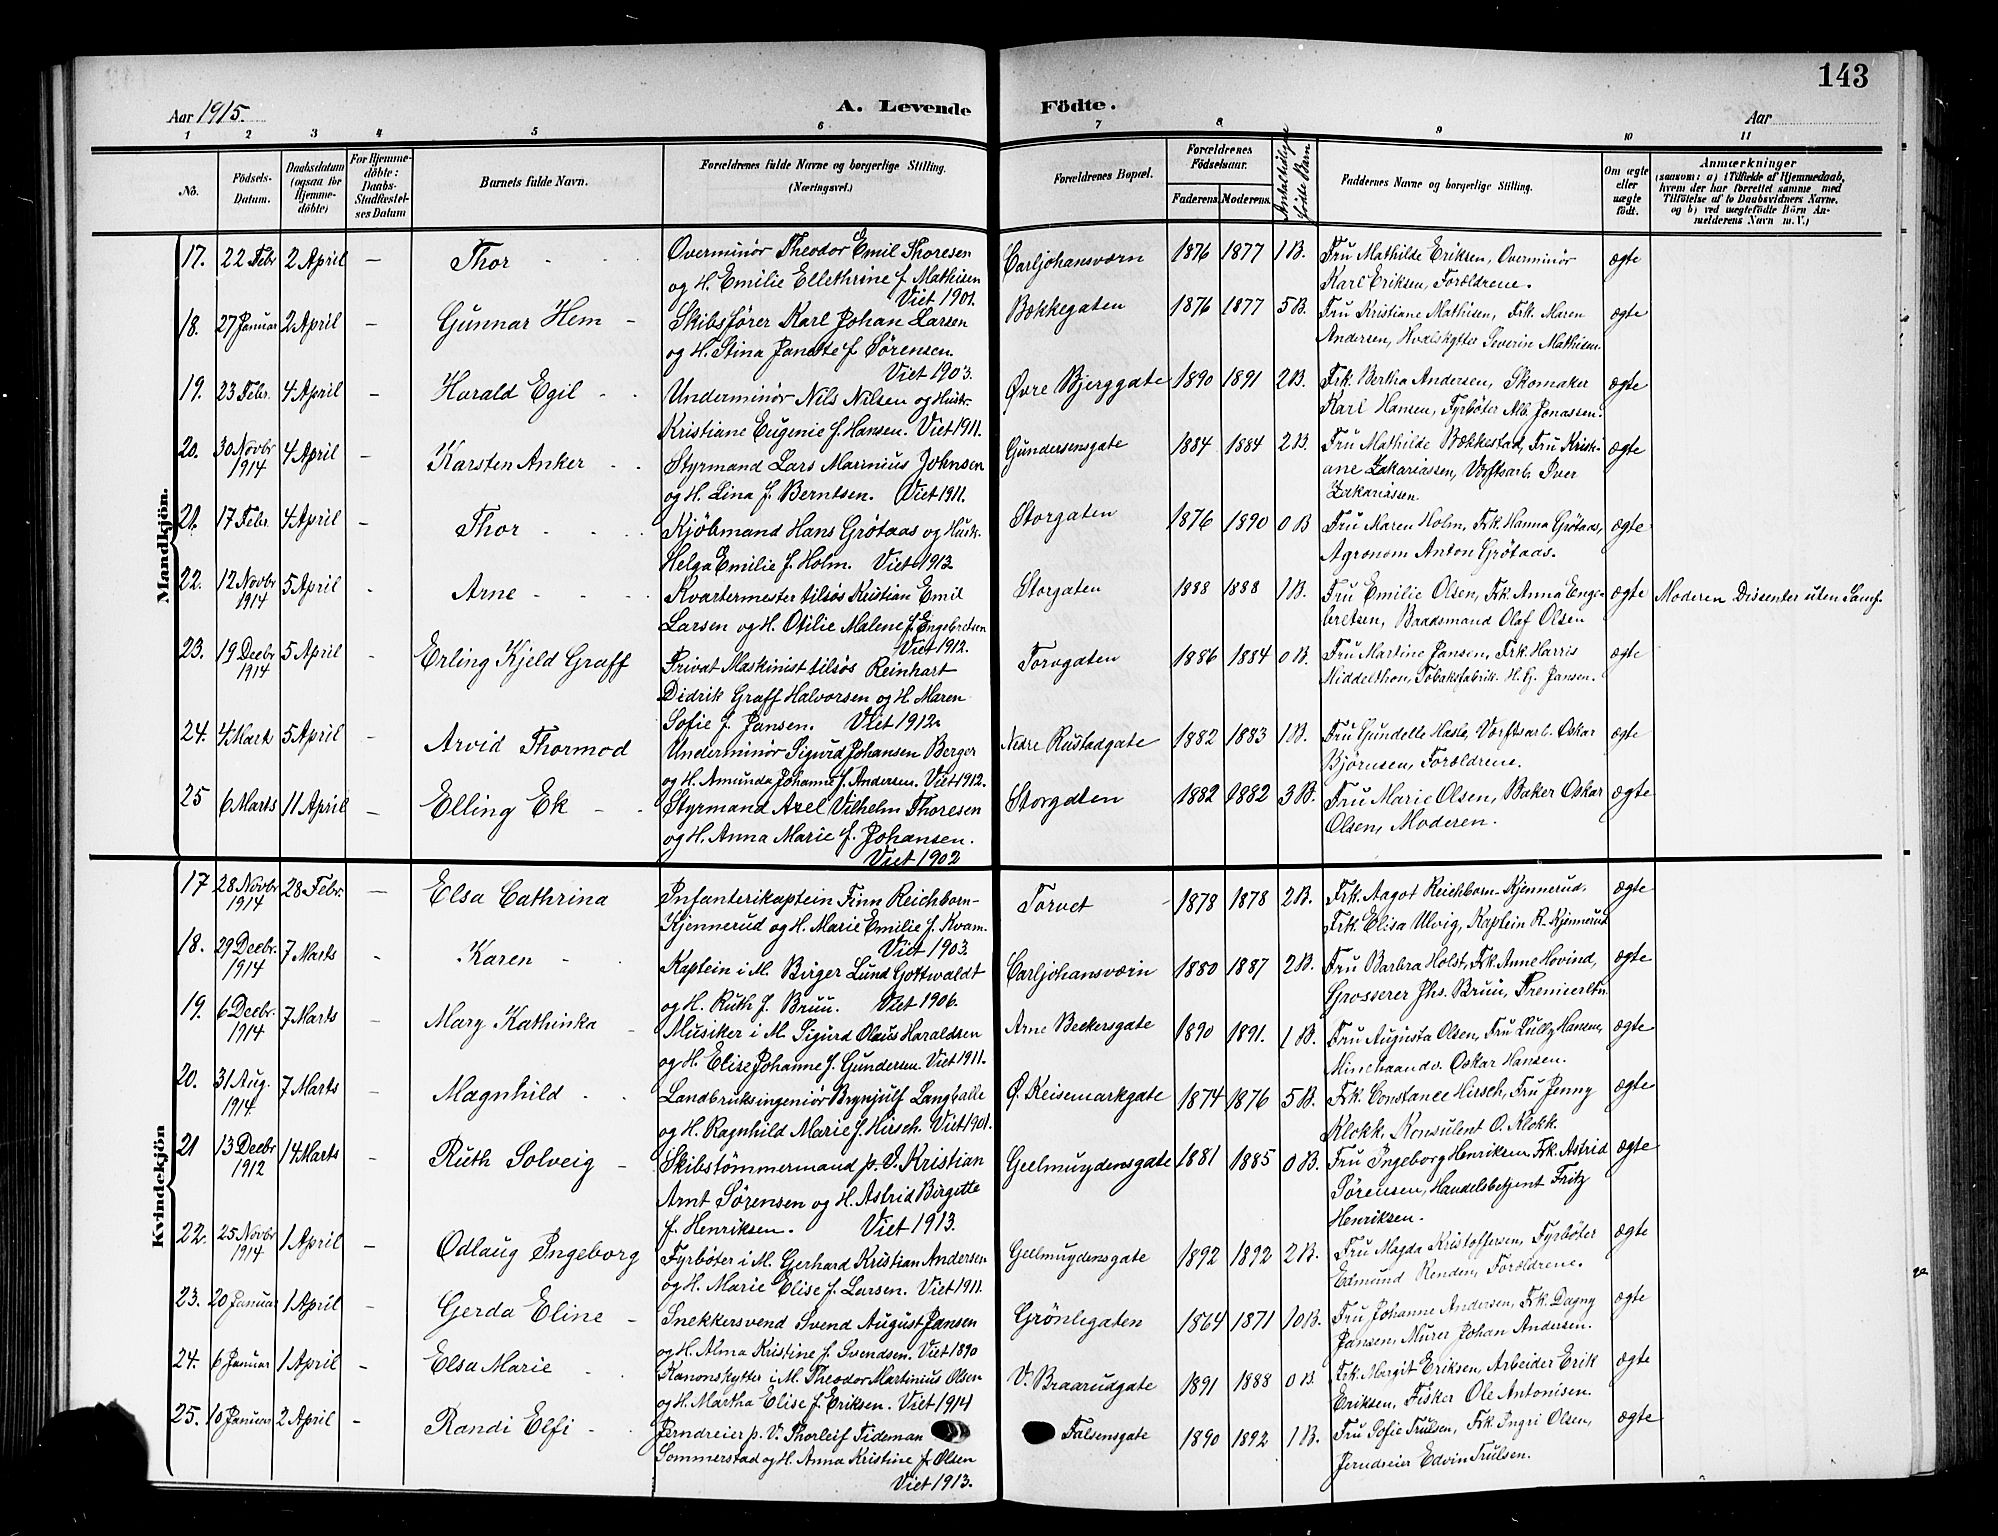 143
Aar 1915.
A. Levende Födte.
Aar
1 2 3 4 5 6 7 8 9 10 11
No.
Födsels-Datum.
Daabsdatum (ogsaa for Hjemmedöbte)
For Hjemmedöbte: Daabs-Stadfæstelses Datum
Barnets fulde Navn.
Forældrenes fulde Navne og borgerlige Stilling. (Næringsvei.)
Forældrenes Bopæl.
Forældrenes Födselsaar.
Faderens. Moderens.
Antal tidligere födte Barn
Faddernes Navne og borgerlige Stilling.
Om ægte eller uægte födt.
Anmærkninger
(saasom: a) i Tilfælde af Hjemmedaab, hvem der har forrettet samme med Tilföielse af to Daabsvidners Navne, og b) ved uægtefödte Börn Anmelderens Navn m. V.)
Mandkjön.
17. 22 Febr 2 April — Thor - -
Overminör Theodor Emil Thoresen
og H. Emilie Ellethrine f. Mathisen
Viet 1901.
Carljohansværn 1876 1877 1 B.
Fru Mathilde Eriksen, Overminör
Karl Eriksen, Forældrene.
ægte
18. 27 Januar 2 April — Gunnar Hem -
Skibsfører Karl Johan Larsen
og H. Stina Janette f. Sørensen.
Viet 1903.
Bækkegaten 1876 1877 5 B.
Fru Kristiane Mathisen, Frk. Maren
Andersen, Hvalskytter Severin Mathisen.
ægte
19. 23 Febr. 4 April — Harald Egil - -
Underminör Nils Nilsen og Hustr.
Kristiane Eugenie f. Hansen. Viet 1911.
Øvre Bjerggate 1890 1891 2 B.
Frk. Bertha Andersen, Skomaker
Karl Hansen, Fyrbøter Alb. Jonassen.
ægte
20. 30 Novbr 1914 4 April — Karsten Anker - -
Styrmand Lars Marinius Johnsen
og H. Lina f. Berntsen. Viet 1911.
Gundersensgate 1884 1884 2 B
Fru Mathilde Bækkestad, Fru Kristi-
ane Zakariassen, Værftsarb. Iver
Zakariassen
ægte
21. 17 Febr. 4 April — Thor - - -
Kjöbmand Hans Grötaas og Hust.
Helga Emilie f. Holm. Viet 1912
Storgaten 1876 1890 0 B
Fru Maren Holm, Frk. Hanna Grötaas,
Agronom Anton Grötaas.
ægte
22. 12 Novbr 1914 5 April - Arne - - -
Kvartermester tilsøs Kristian Emil
Larsen og H. Otilie Malene f. Engebretsen
Viet 1912.
Storgaten 1888 1888 1 B.
Fru Emilie Olsen, Frk. Anna Enge-
bretsen, Baadsmand Olaf Olsen
ægte Moderen Dissenter uten Samf.
23. 19 Decbr 1914 5 April - Erling Kjeld Graff
Privat Maskinist tilsøs Reinhart
Didrik Graff Halvorsen og H. Maren
Sofie f. Jansen. Viet 1912.
Torvgaten 1886 1884 0 B.
Fru Martine Jansen, Frk Harris
Middelthon, Tobaksfabrik. H. G. Jansen.
ægte
24. 4 Mart 5 April - Arvid Thormod
Underminör Sigurd Johansen Berger
og H. Amunda Johanne f. Andersen. Viet 1912.
Nedre Rustadgate 1882 1883 1 B.
Fru Gundelle Hasle, Værftsarb. Oskar
Bjørnsen, Forældrene.
ægte
25 6 Marts 11 April — Elling Ek - -
Styrmand Axel Vilhelm Thoresen
og H. Anna Marie f. Johansen.
Viet 1902
Storgaten 1882 1882 3 B.
Fru Marie Olsen, Baker Oskar
Olsen, Moderen.
ægte
Kvindekjön
17 28 Novbr 1914 28 Febr. — Elsa Cathrina
Infanterikaptein Finn Reichborn-
Kjennerud og H. Marie Emilie f. Kvam.
Viet 1903.
Torvet - 1878 1878 2 B.
Frk. Aagot Reichborn-Kjennerud,
Frk. Elisa Ulvig, Kaptein R-Kjennerud
ægte
18. 29 Decbr. 1914 7 Marts - Karen -
Kaptein i M. Birger Lund Gottwaldt
og H. Ruth f. Bruu. Viet 1906.
Carljohansværn 1880 1887 2 B.
Fru Barbra Holst, Frk. Anne Hovind,
Grosserer Jhs. Bruu, Premierltn.
ægte
19. 6 Decbr. 1914 7 Marts — Mary Kathinka -
Musiker i M. Sigurd Olaus Haraldsen
og H. Elise Johanne f. Gundersen. Viet 1911.
Arne Beckersgate 1890 1891. 1 B.
Fru Augusta Olsen, Fru Lully Hansen,
Oskar Hansen.
ægte
20. 31 Aug. 1914 7 Marts — Magnhild - -
Landbruksingeniör Brynjulf Langballe
og H. Ragnhild Marie f. Hirsch. Viet 1901.
Ø. Keisemarkgate 1874 1876 5 B.
Frk. Constance Hirsch, Fru Jenny
Klokk, Konsulent O. Klokk.
ægte
21 13 Decbr 1912 14 Marts — Ruth Solveig -
Skibstömmermand p. V. Kristian
Arnt Sørensen og H. Astrid Birgitte
f. Henriksen. Viet 1913.
Geelmuydensgate 1881 1885 0 B.
Fru Ingeborg Henriksen, Frk. Astrid
Sørensen, Handelsbetjent Fritz
Henriksen.
ægte
22. 25 Novbr 1914 1 April — Odlaug Ingeborg
Fyrbøter i M. Gerhard Kristian Andersen
og H. Marie Elise f. Larsen. Viet 1911.
Geelmuydensgate 1892 1892 2 B.
Fru Magda Kristoffersen, Fyrbøter
Edmund Renden, Forældrene.
ægte
23. 20 Januar 1 April - Gerda Eline -
Snekkersvend Svend August Jansen
og H. Alma Kristine f. Svendsen. Viet 1890
Grönlegaten 1864 1871 10 B.
Fru Johanne Andersen, Frk. Dagny
Jansen, Murer Johan Andersen.
ægte
24. 6 Januar 1 April — Elsa Marie -
Kanonskytter i M. Theodor Martinius Olsen
og H. Martha Elise f. Eriksen. Viet 1914
V. Braarudgate 1891 1888 0 B.
Frk. Margit Eriksen, Arbeider Erik
Eriksen, Fisker Ole Antonisen.
ægte
25. 10 Januar 2 April — Randi Elfi -
Jerndreier p. V. Thorleif Tideman
Sommerstad og H. Anna Kristine f. Olsen
Viet 1913.
Falsensgate 1890 1892 1 B.
Fru Sofie Trulsen, Frk. Ingri Olsen,
Jerndreier Edvin Trulsen.
ægte